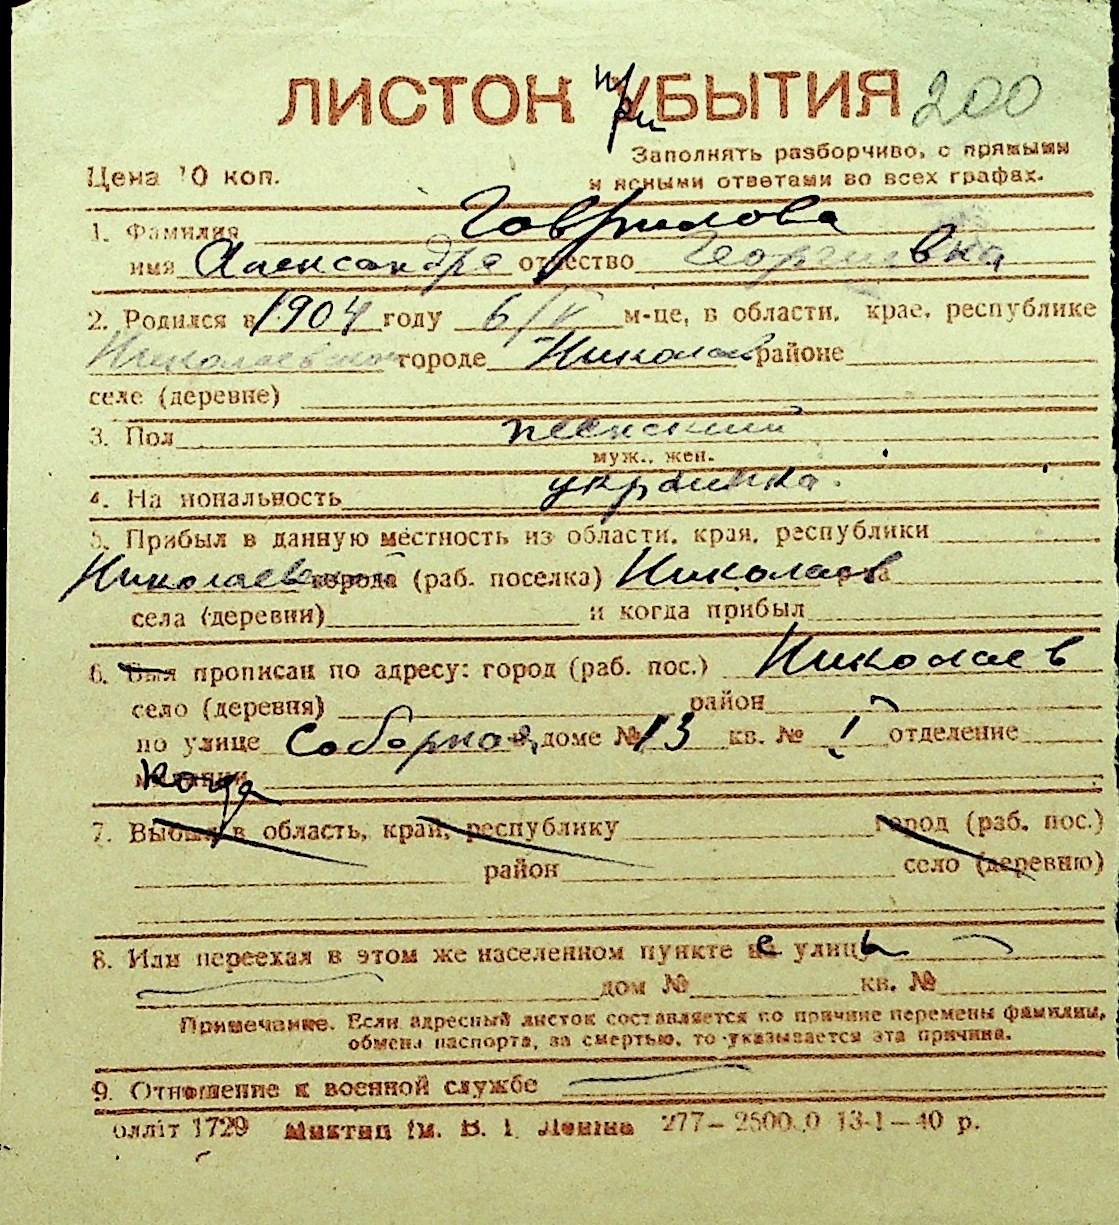 ЛИСТОК УБЫТИЯ при 200
Цена 10 коп.
Заполнять разборчиво, с прямыми
и ясными ответами во всех графах.
1. Фамилия Гаврилова
имя Александра отчество Георгиевна
2. Родился в 1904 году 6/V м-це, в области, крае, республике
Николаевской городе Николаев районе
селе (деревне)
3. Пол женский
муж., жен.
4. Национальность украинка.
5. Прибыл в данную местность из области, края, республики
Николаевской города (раб. поселка) Николаев
села (деревни) и когда прибыл
6. Был прописан по адресу: город (раб. пос.) Николаев
село (деревня) район
по улице Соборная, доме № 13 кв. № 1 отделение
милиции
7. Выбыл в область, край, республику город (раб. пос.)
район село (деревню)
8. Или переехал в этом же населенном пункте с улицы
дом № кв. №
Примечание. Если адресный листок составляется по причине перемены фамилии,
обмена паспорта, за смертью, то указывается эта причина.
9. Отношение к военной службе
олліт 1729 Миктип ім. В. І. Леніна 277—2500.0 13-1—40 р.